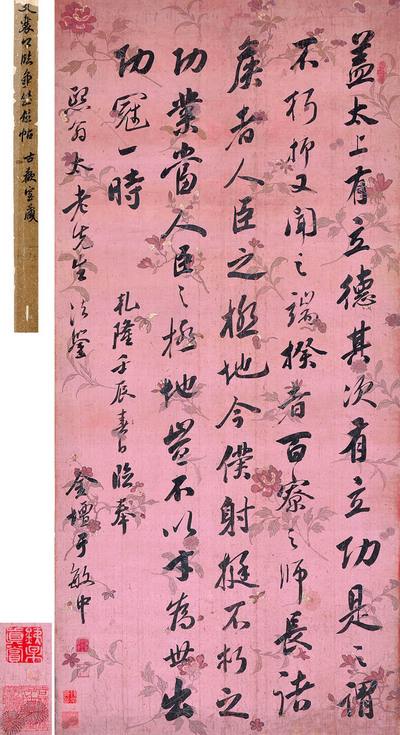 盖太上有立德其次有立功是之謂
不朽抑又聞之端揆者百寮之師長諸
侯者人臣之極地今僕射挺不朽之
功業當人臣之極地豈不以才為世出
功冠一時
乾隆壬辰春日臨奉
熙翁太老先生 法鑒 金壇于敏中
文襄公臨爭坐位帖 古歡室藏